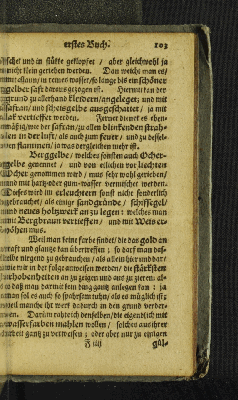 erstes Buch. 103
zschet und in stücke geklopfet / aber gleichwohl ja
nicht klein gerieben werden. Dan weicht man es /
mit allaun / in reinem wasser / so lange bis ein schöner
gelber saft daraus gezogen ist. Hiermit kan der
grund zu allerhand kleidern / angeleget; und mit
safran / und schietgelbe ausgeschattet / ja mit
lak vertieffet werden. Ferner dienet es eben-
mäßig / wie der safran / zu allen blinkenden strah-
len in der luft / als auch zum feuer / und zu dessel-
ben flammen / ja was dergleichen mehr ist.
Berggelbe / welches sonsten auch Ocher-
gelbe genennet / und von etlichen vor leichten
Ocher genommen wird / mus sehr wohl gerieben /
und mit hartz- oder gum-wasser vermischet werden.
Dieses wird im erleuchtern fast nicht sonderlich
gebrauchet / als einige sandgründe / schiffsegel /
und neues holzwerk an zu legen: welches man
mit Bergbraun vertieffen / und mit Weis er-
höhen mus.
Weil man keine farbe findet / die das gold an
kraft und glantze kan übertreffen: so darf man das-
selbe nirgend zu gebrauchen / als allein hier und dar /
wie wir in der folge anweisen werden / die stärksten
erhobenheiten an zu zeigen und aus zu zieren: al-
so daß man darmit kein ding gantz anlegen kan: ja
man sol es auch so spahrsam tuhn / als es müglich ist;
weil manche ihr werk dadurch in den grund verder-
ben. Darüm rahte ich denselben / die eigentlich mit
wasserfarben mahlen wollen / solches aus ihrer
arbeit gantz zu verweisen; oder aber nur zu eetigen
F iiij gül-